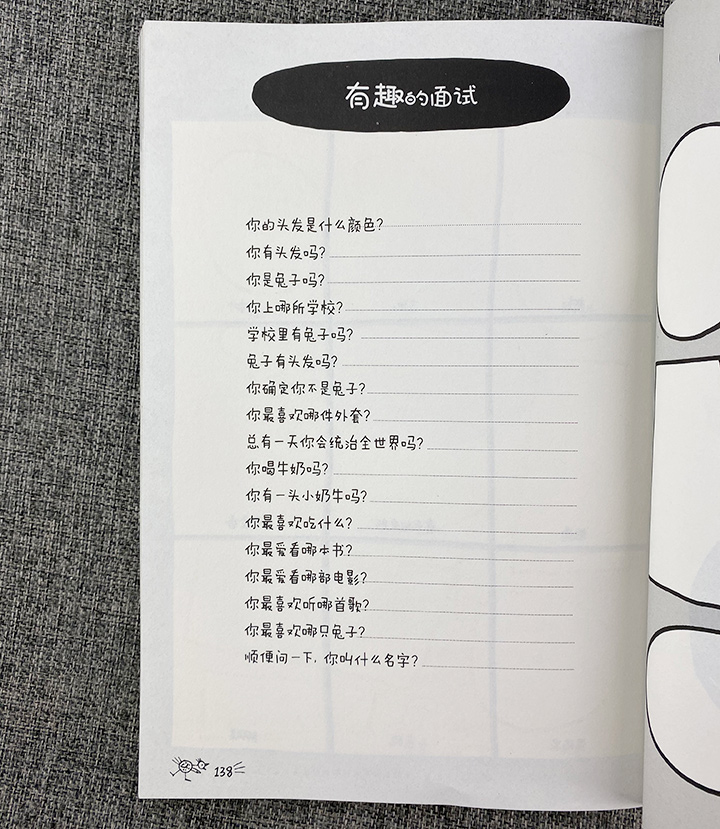 有趣的面试
你的头发是什么颜色?
你有头发吗?
你是兔子吗?
你上哪所学校?
学校里有兔子吗?
兔子有头发吗?
你确定你不是兔子?
你最喜欢哪件外套?
总有一天你会统治全世界吗?
你喝牛奶吗?
你有一头小奶牛吗?
你最喜欢吃什么?
你最爱看哪本书?
你最爱看哪部电影?
你最喜欢听哪首歌?
你最喜欢哪只兔子?
顺便问一下,你叫什么名字?
138